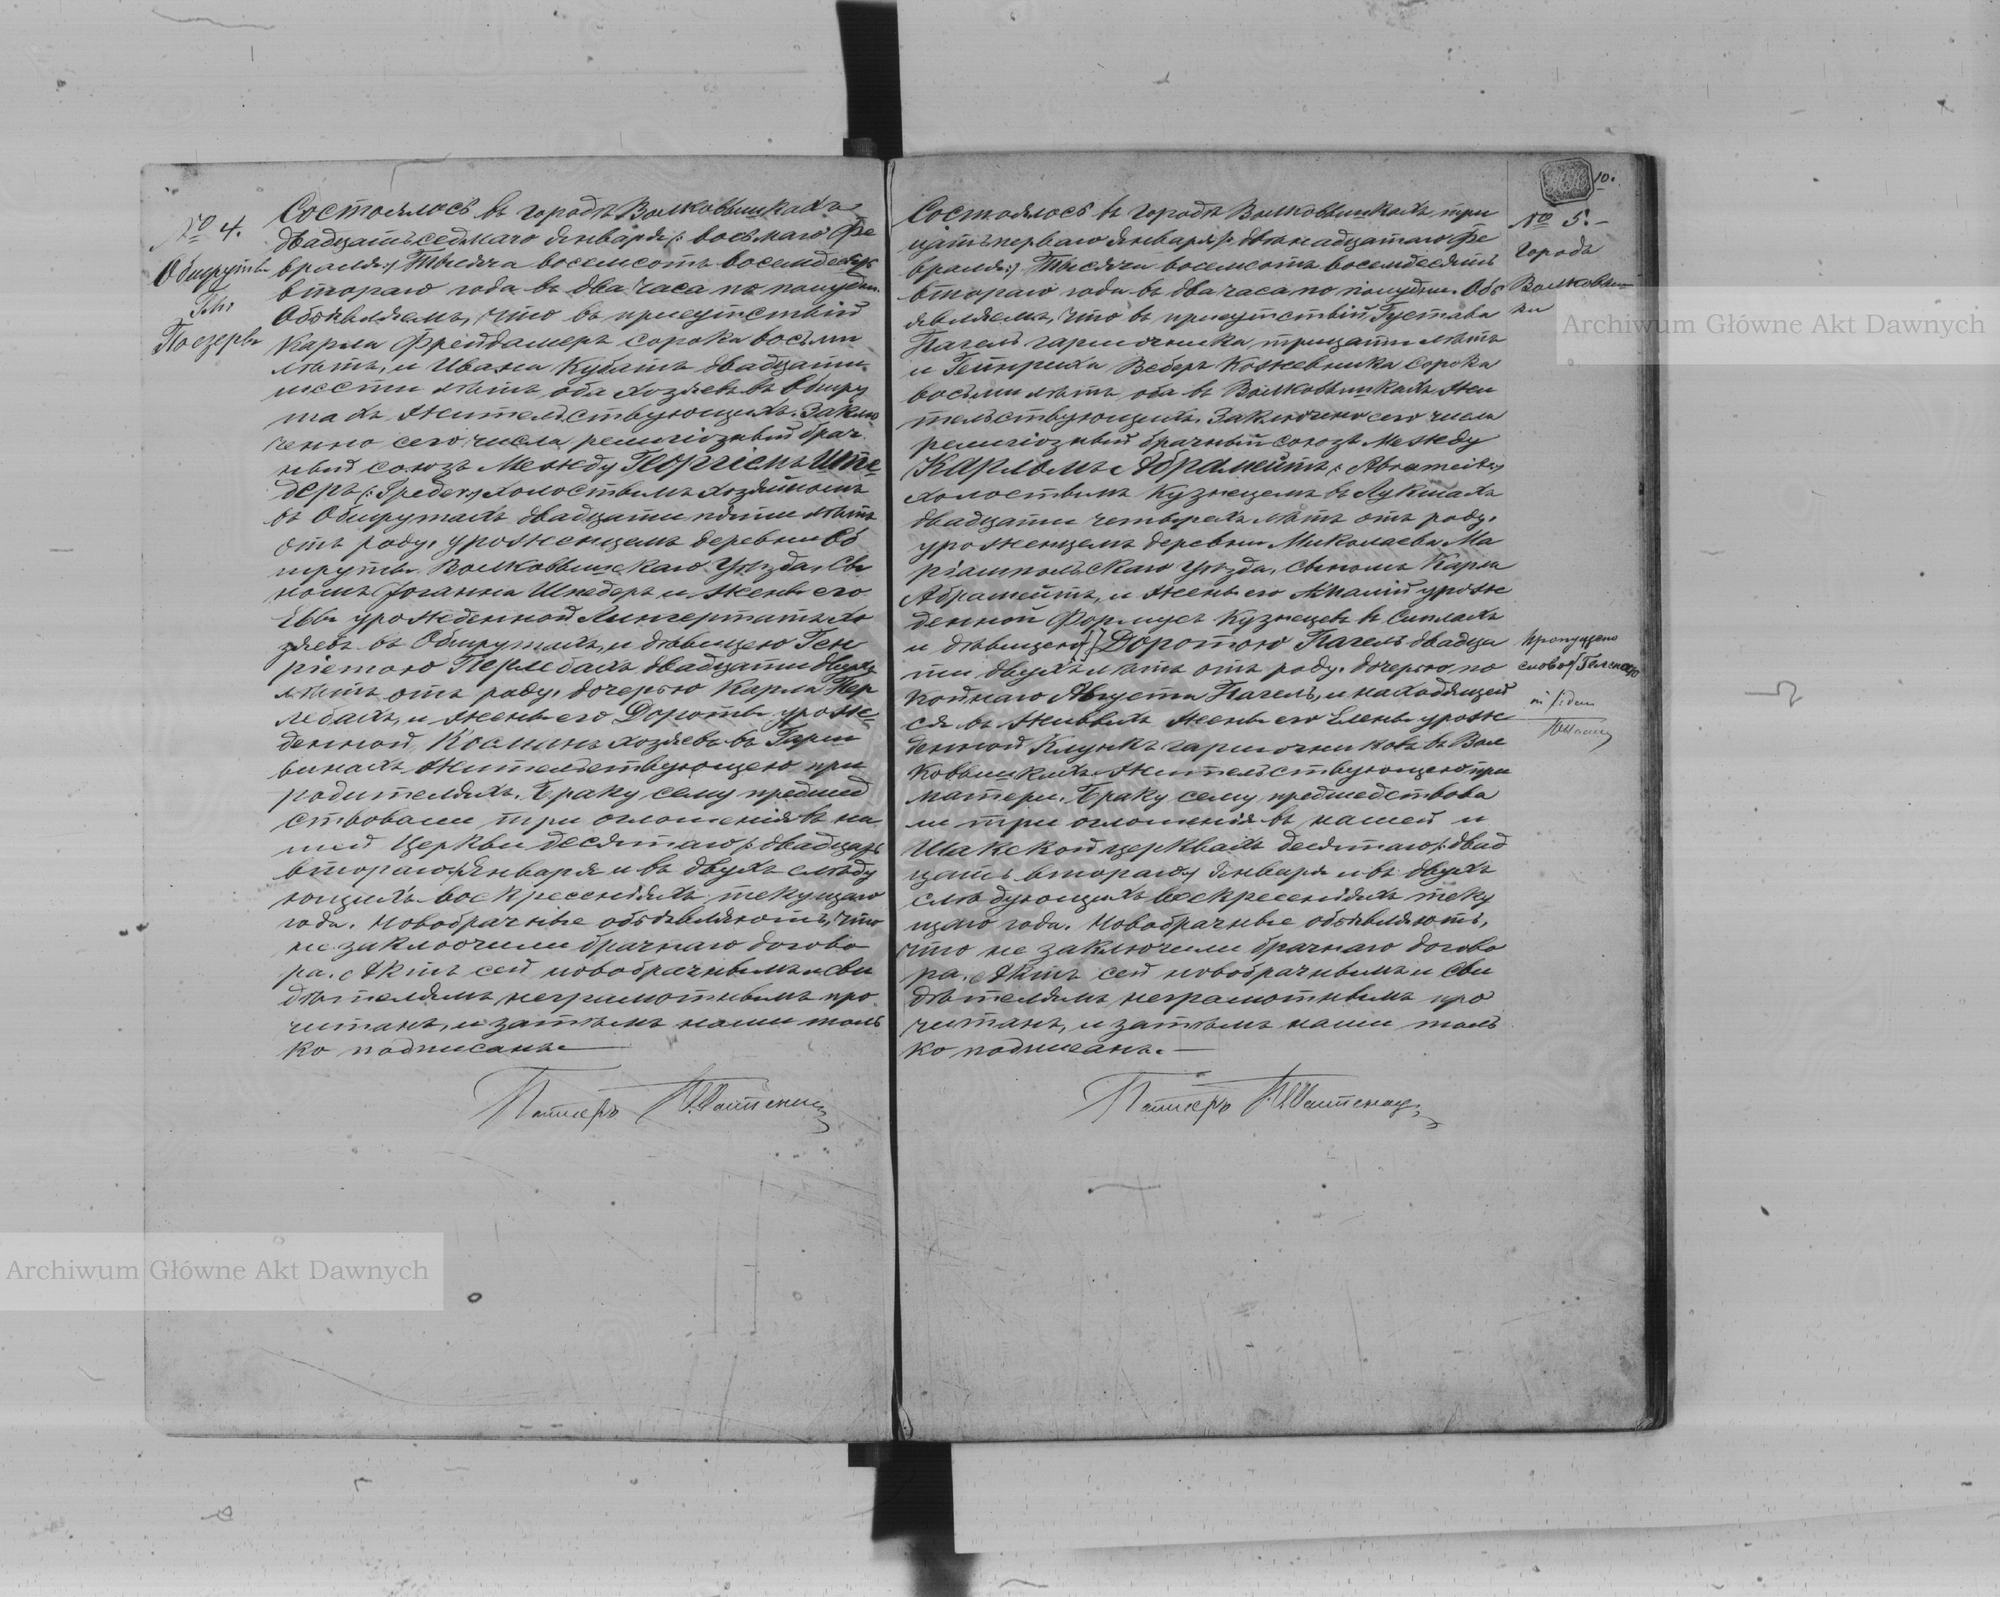 № 4.
Обшруты
Гм:
Поезеры
Состоялось въ городѣ Волковышкахъ
двадцать седьмаго Января /: восьмаго Фе
враля:/ Тысяча восемьсотъ восемдесятъ
втораго года въ два часа по полудни.
Объявляемъ, что въ присутствіи
Карла Фрейдамеръ сорока восьми
лѣтъ, и Ивана Кубатъ двадцати
шести лѣтъ, оба хозяевъ въ Обшру
тахъ жительствующихъ. Заклю
ченно сего числа религіозный брач
ный союзъ между Георгіемъ Шре
деръ /: Шредеr:/ холостымъ хозяйномъ
въ Обшрутахъ двадцати пяти лѣтъ
отъ роду, уроженцемъ деревни Об
шруты Волковышскаго Уѣзда, Сы
номъ Іоганна Шредеръ и жены его
Евы урожденной Лингертатъ хо
зяевъ въ Обшрутахъ, и дѣвицею Ген
ріетою Перлебахъ двадцати двухъ
лѣтъ отъ роду, дочерью Карла Пер
лебахъ, и жены его Дороты урож-
денной Косманъ хозяевъ въ Гарш
винахъ жительствующею при
родителяхъ. Браку сему предшед
ствовали три оглошенія въ на
шей Церкви десятаго /: двадцать
втораго:/ Января и въ двухъ слѣду
ющихъ воскресеніяхъ текущаго
года. Новобрачные объявляютъ, что
не заключили брачнаго догово
ра. Актъ сей новобрачнымъ и сви
дѣтелямъ неграмотнымъ про
читанъ, и затѣмъ нами толь
ко подписанъ.
Пасторъ
10.
№ 5.
Городъ
Волковыш
ки
Состоялось въ городѣ Волковышкахъ три
цать перваго Января /: двѣнадцатаго Фе
враля:/ Тысяча восемьсотъ восемдесятъ
втораго года въ два часа по полудни. Объ
являемъ, что въ присутствіи Густава
Пагель гарночника, трицати лѣтъ
и Гейнриха Веберъ Кожевника сорока
восьми лѣтъ, оба въ Волковышкахъ жи
тельствующихъ. Заключено сего числа
религіозный брачный союзъ между
Карломъ Абрамейтъ /: Abrameit:/
холостымъ Кузнецемъ въ Лукшахъ
двадцати четырехъ лѣтъ отъ роду,
уроженцемъ деревни Миколаевъ Ма
ріампольскаго Уѣзда, сыномъ Карла
Абрамейтъ, и жены его Амаліи урож
денной Формусъ Кузнецевъ въ Синлахъ
и дѣвицею /:/ Доротою Пагель двадца
ти двухъ лѣтъ отъ роду, дочерью по
койнаго Августа Пагель, и находящей
ся въ живыхъ жены его Елены урож
денной Клункъ гарночниковъ въ Вол
ковышкахъ жительствующею при
матери. Браку сему предшедствова
ли три оглошенія въ нашей и
Шакской церквахъ десятаго /: двад
цать втораго:/ Января и въ двухъ
слѣдующихъ воскресеніяхъ теку
щаго года. Новобрачные объявляютъ,
что не заключили брачнаго догово
ра. Актъ сей новобрачнымъ и сви
дѣтелямъ неграмотнымъ про
читанъ, и затѣмъ нами толь
ко подписанъ.
Пасторъ
Пропущено
слово
Archiwum Główne Akt Dawnych
Archiwum Główne Akt Dawnych